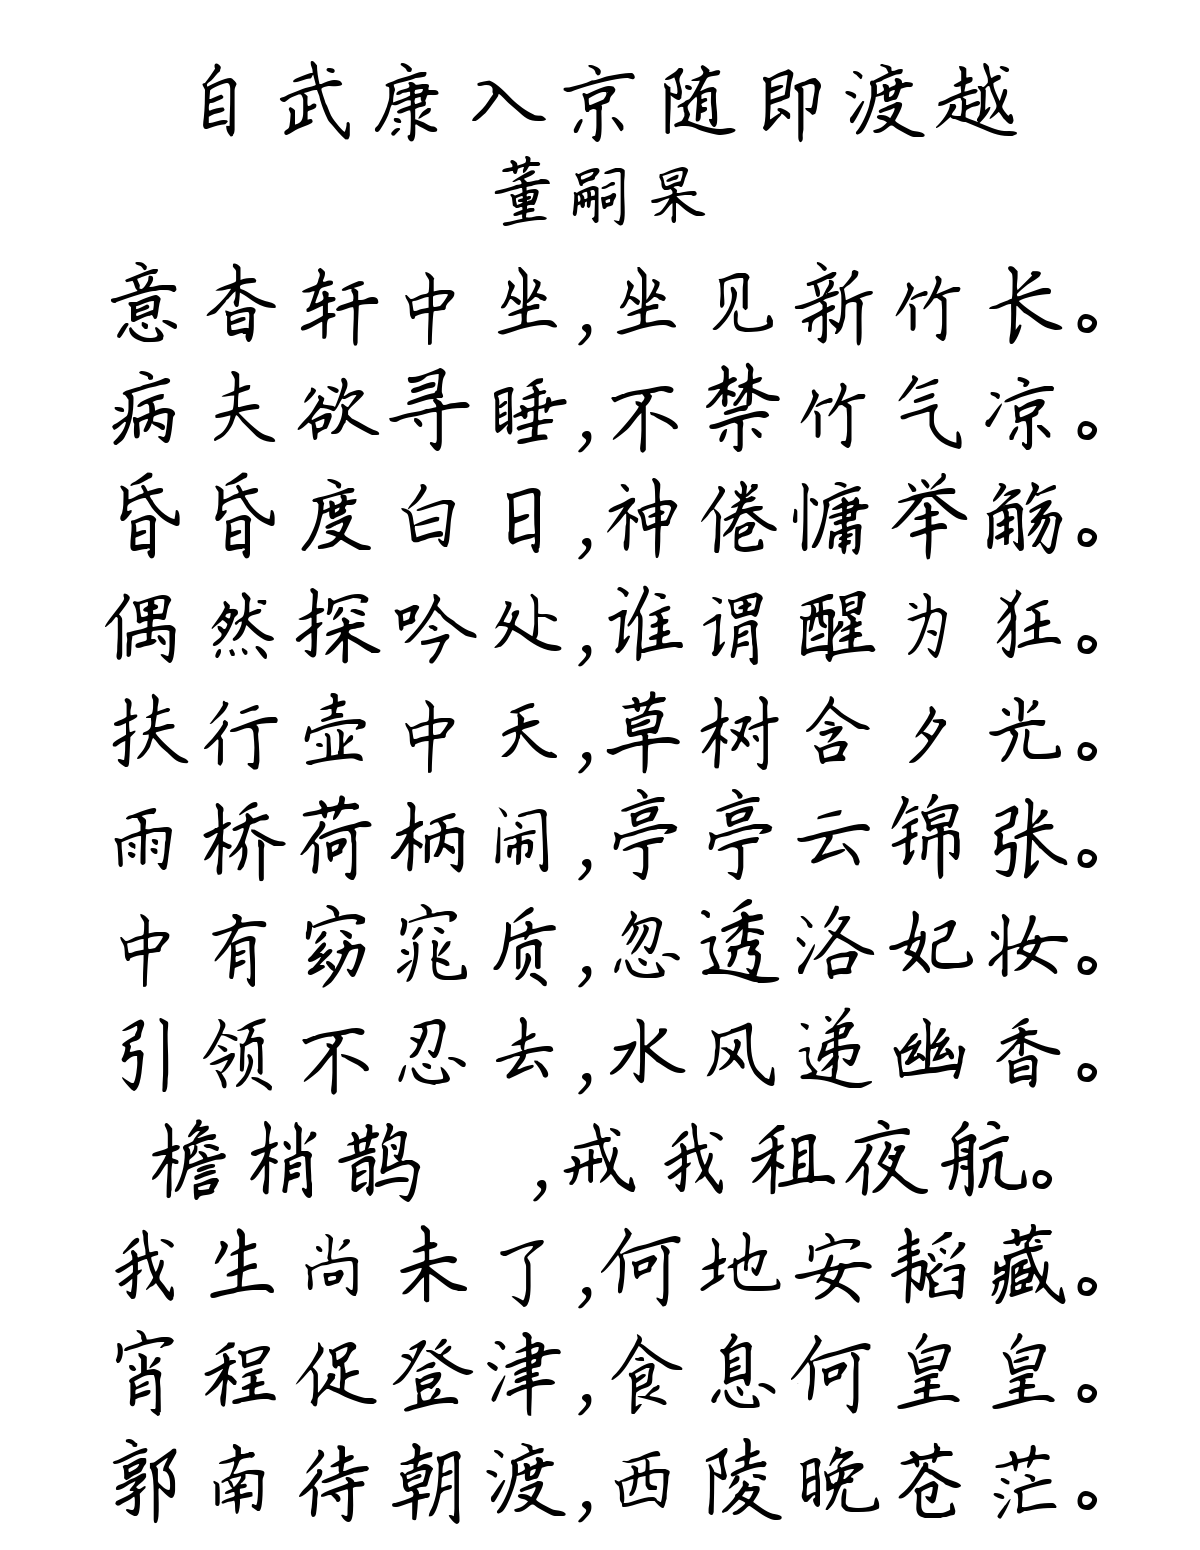 自武康入京随即渡越
董嗣杲
意杳轩中坐,坐见新竹长。
病夫欲寻睡,不禁竹气凉。
昏昏度白日,神倦慵举觞。
偶然探吟处,谁谓醒为狂。
扶行壶中天,草树含夕光。
雨桥荷柄闹,亭亭云锦张。
中有窈窕质,忽透洛妃妆。
引领不忍去,水风递幽香。
檐梢鹊 ,戒我租夜航。
我生尚未了,何地安韬藏。
宵程促登津,食息何皇皇。
郭南待朝渡,西陵晚苍茫。